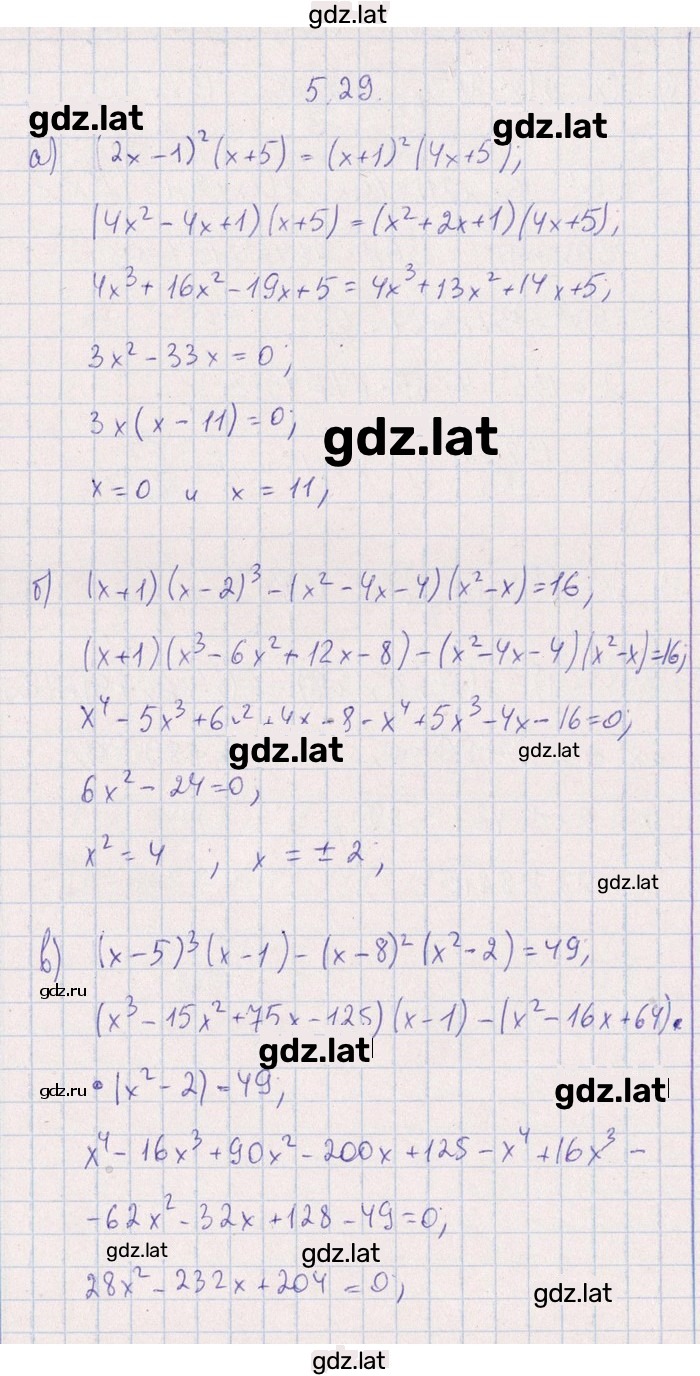 gdz.lat
5.29.
gdz.lat
gdz.lat
а) (2x - 1)² (x + 5) = (x + 1)² (4x + 5);
(4x² - 4x + 1) (x + 5) = (x² + 2x + 1) (4x + 5);
4x³ + 16x² - 19x + 5 = 4x³ + 13x² + 14x + 5;
3x² - 33x = 0;
3x (x - 11) = 0;
gdz.lat
x = 0 и x = 11;
б) (x + 1) (x - 2)³ - (x² - 4x - 4) (x² - x) = 16;
(x + 1) (x³ - 6x² + 12x - 8) - (x² - 4x - 4) (x² - x) = 16;
x⁴ - 5x³ + 6x² + 4x - 8 - x⁴ + 5x³ - 4x - 16 = 0;
gdz.lat
gdz.lat
6x² - 24 = 0;
x² = 4 ; x = ± 2;
gdz.lat
в) (x - 5)³ (x - 1) - (x - 8)² (x² - 2) = 49;
gdz.ru
(x³ - 15x² + 75x - 125) (x - 1) - (x² - 16x + 64) •
gdz.lat
gdz.ru
• (x² - 2) = 49;
gdz.lat
x⁴ - 16x³ + 90x² - 200x + 125 - x⁴ + 16x³ -
- 62x² - 32x + 128 - 49 = 0;
gdz.lat
gdz.lat
28x² - 232x + 204 = 0;
gdz.lat
gdz.lat